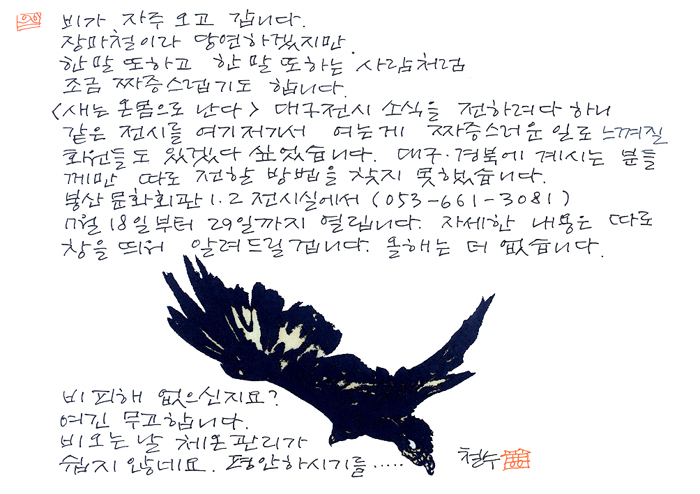 비가 자주 오고 갑니다.
장마철이라 당연하겠지만
한 말 또하고 한 말 또하는 사람처럼
조금 짜증스럽기도 합니다.
<새는 온몸으로 난다> 대구전시 소식을 전하려다 하니
같은 전시를 여기저기서 여는게 짜증스러운 일로 느껴질
회원들도 있겠다 싶었습니다. 대구·경북에 계시는 분들
께만 따로 전할 방법을 찾지 못했습니다.
봉산 문화회관 1.2 전시실에서 (053-661-3081)
7월 18일부터 29일까지 열립니다. 자세한 내용은 따로
창을 띄워 알려드릴겁니다. 올해는 더 없습니다.
비 피해 없으신지요?
여긴 무고합니다.
비오는 날 체온관리가
쉽지 않네요. 평안하시기를.....
철수